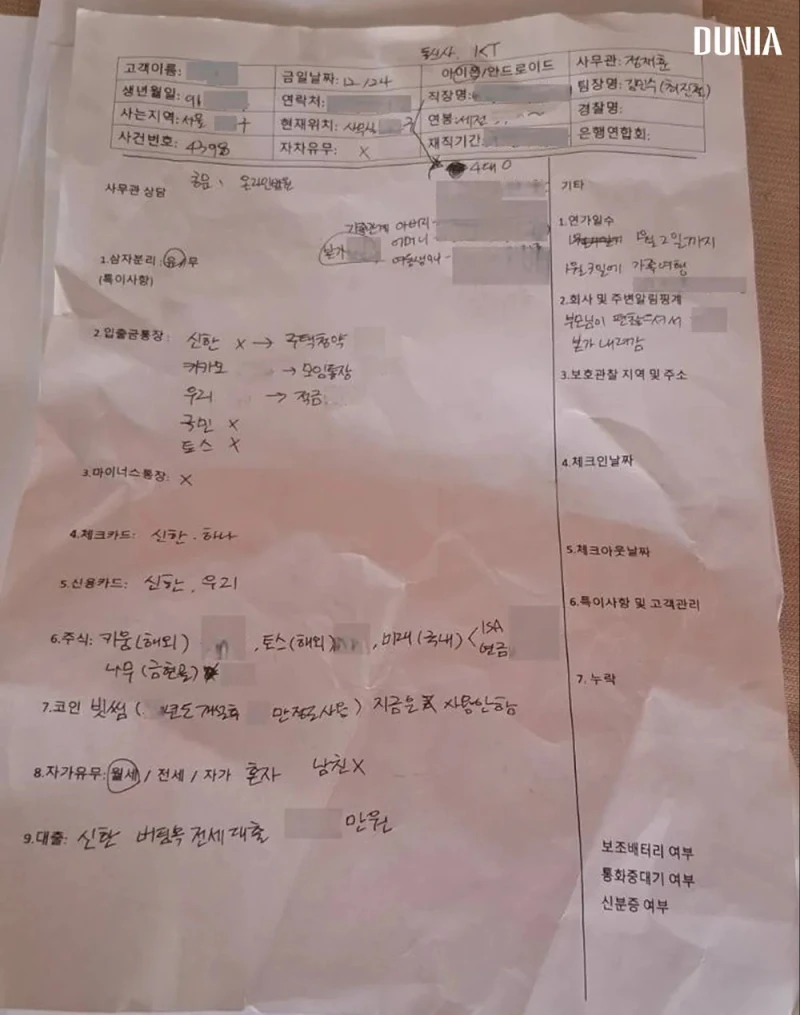 DUNIA
통신사. KT
고객이름:
금일날짜: 12/24
아이폰/안드로이드
사무관: 정재훈
생년월일: 91
연락처:
직장명:
팀장명: 김민수
사는지역: 서울
현재위치: 사무실
연봉: 세전
경찰명:
사건번호: 4398
자차유무: X
재직기간:
은행연합회:
4대 O
사무관 상담
가족관계 아버지-
어머니-
본가
1.삼자분리: 유/무
(특이사항)
2.입출금통장: 신한 X → 주택청약
카카오 → 모임통장
우리 → 적금
국민 X
토스 X
3.마이너스통장: X
4.체크카드: 신한. 하나
5.신용카드: 신한. 우리
6.주식: 키움(해외) , 토스(해외) , 미래(국내) < ISA
연금
나무 (금현물)
7.코인 빗썸 ( 만정도사용) 지금은 X 사용안함
8.자가유무: 월세 / 전세 / 자가 혼자 남친X
9.대출: 신한 버팀목 전세대출 만원
기타
1.연가일수
1월2일까지
1월3일에 가족여행
2.회사 및 주변알림핑계
부모님이 편찮으셔서
본가 내려감
3.보호관찰 지역 및 주소
4.체크인날짜
5.체크아웃날짜
6.특이사항 및 고객관리
7. 누락
보조배터리 여부
통화중대기 여부
신분증 여부